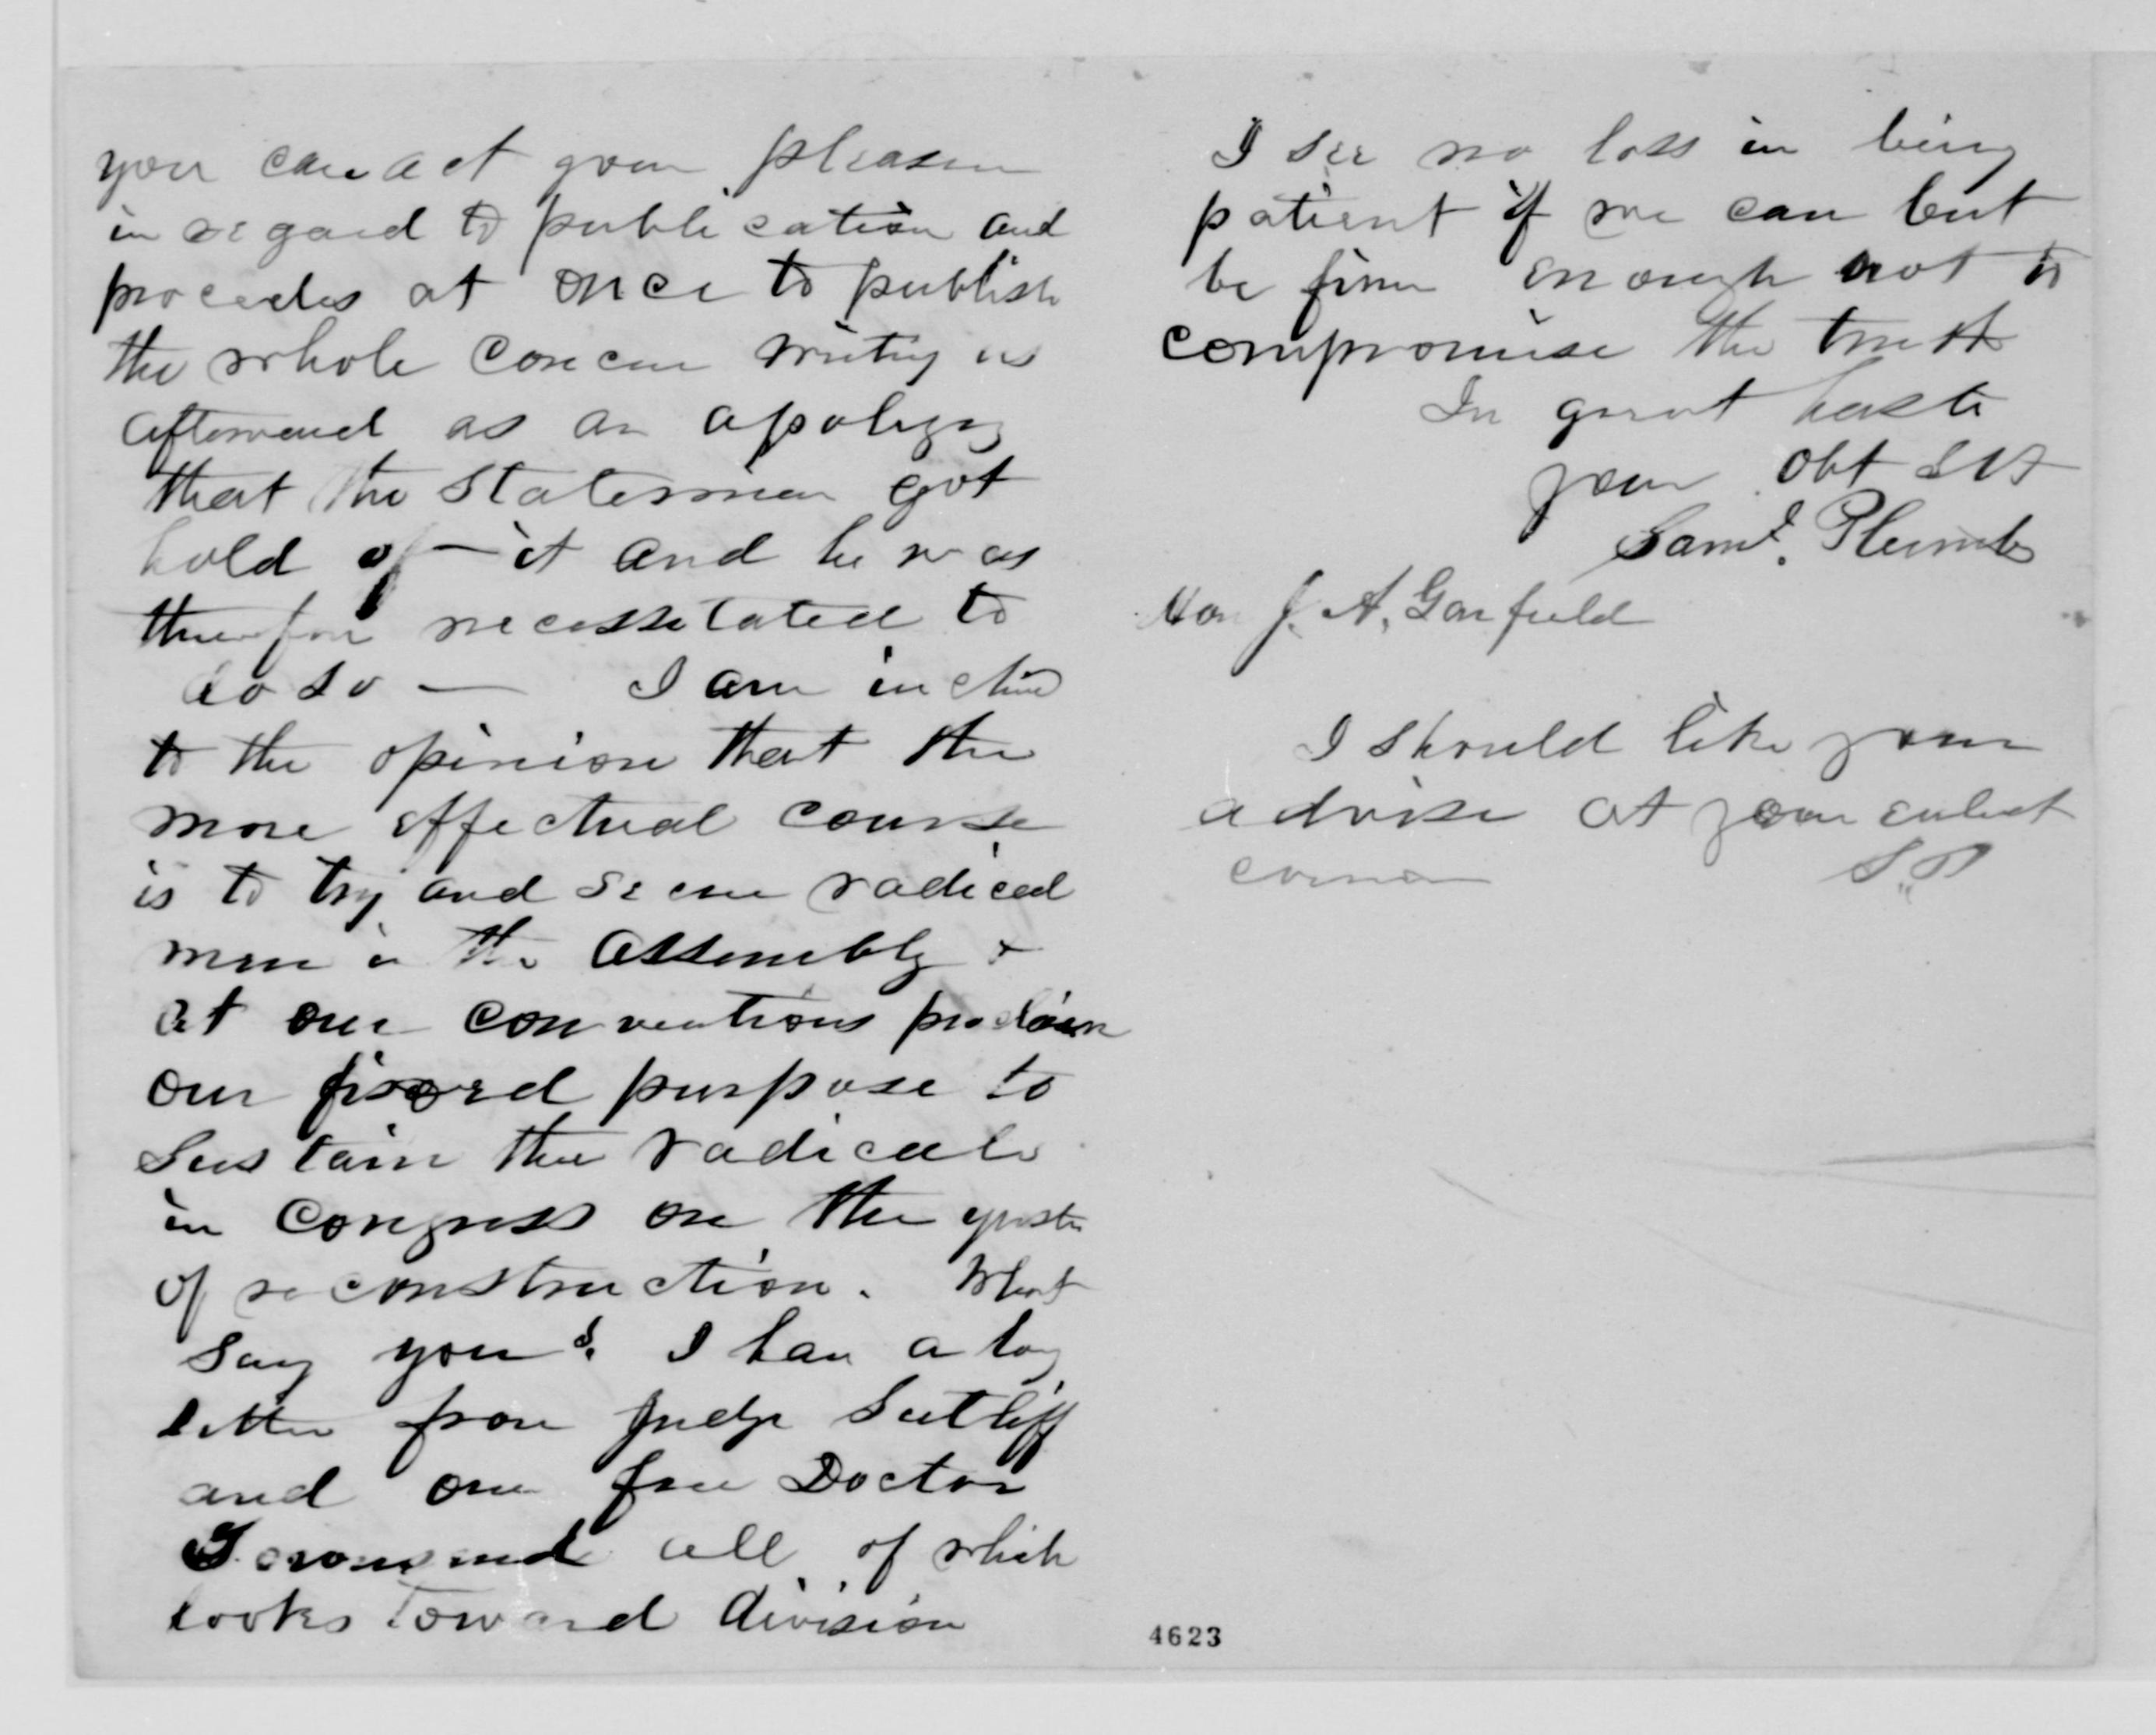 you can act your pleasure
in regard to publication and
procedes at once to publish
the whole concern writing us
afterward as an apology
that the Statesman got
hold of it and he was
therefore necessitated to
do so — I am inclined
to the opinion that the
more effectual course
is to try and secure radical
men in the Assembly +
at our conventions proclaim
our fixed purpose to
Sustain the radicals
in Congress on the question
of reconstruction. What
say you? I have a long
letter from Judge Sutliff
and one from Doctor
all of which
looks toward division
I see no loss in being
patient if we can but
be firm enough not to
compromise the truth
In great haste
your obt svt
Saml. Plumb
Hon J. A. Garfield
I should like your
advise at your earliest
S.P
4623